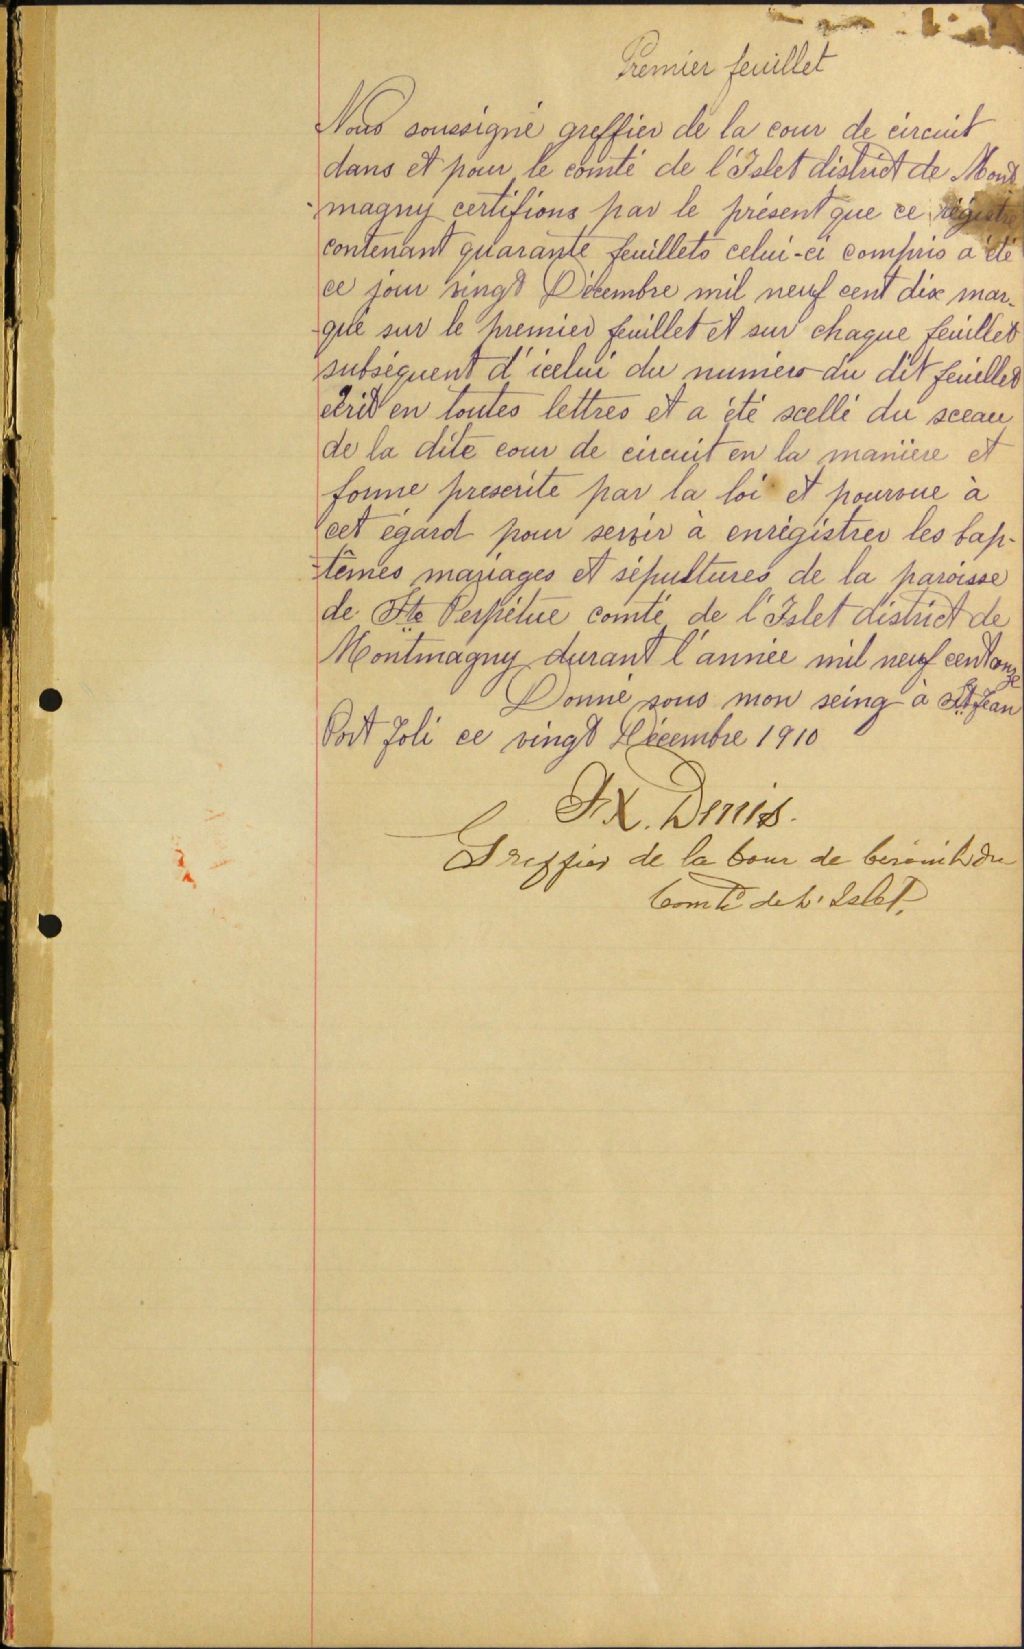 Premier feuillet
Nous soussigné greffier de la cour de circuit
dans et pour le comté de l'Islet district de Mont
-magny certifions par le présent que ce régistre
contenant quarante feuillets celui-ci compris a été
ce jour vingt Décembre mil neuf cent dix mar-
-qué sur le premier feuillet et sur chaque feuillet
subséquent d'icelui du numéro du dit feuillet
écrit en toutes lettres et a été scellé du sceau
de la dite cour de circuit en la manière et
forme prescrite par la loi et pourvue à
cet égard pour servir à enrégistrer les bap-
-têmes mariages et sépultures de la paroisse
de Ste Perpétue comté de l'Islet district de
Montmagny durant l'année mil neuf cent onze
Donné sous mon seing à St Jean
Port Joli ce vingt Décembre 1910
FX. Denis.
Greffier de la Cour de Circuit du
Comté de L'Islet.